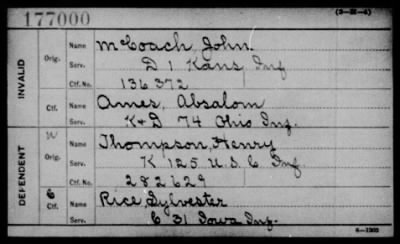 177000
(3-211-6)
INVALID
Orig.
Name McCoach, John
Serv. D 1 Kans, Inf
Ctf. No. 136372
Ctf.
Name Ames, Absalom
Serv. K+D 74 Ohio Inf.
DEPENDENT
W
Orig.
Name Thompson, Henry
Serv. K 125 U.S.C Inf
Ctf. No. 282629
Ctf.
Name Rice Sylvester
Serv. 31 Iowa Inf.